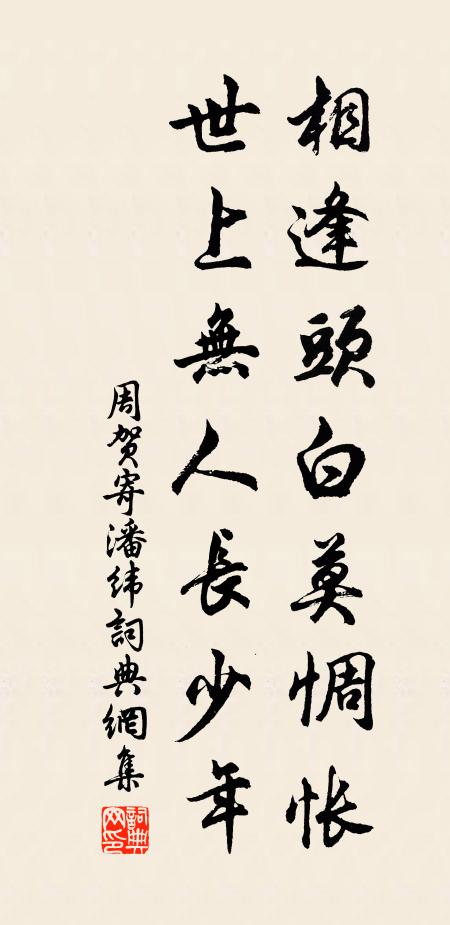 相逢頭白莫惆怅
世上無人長少年
周贺寄潘纬詞典網集
詞典网印